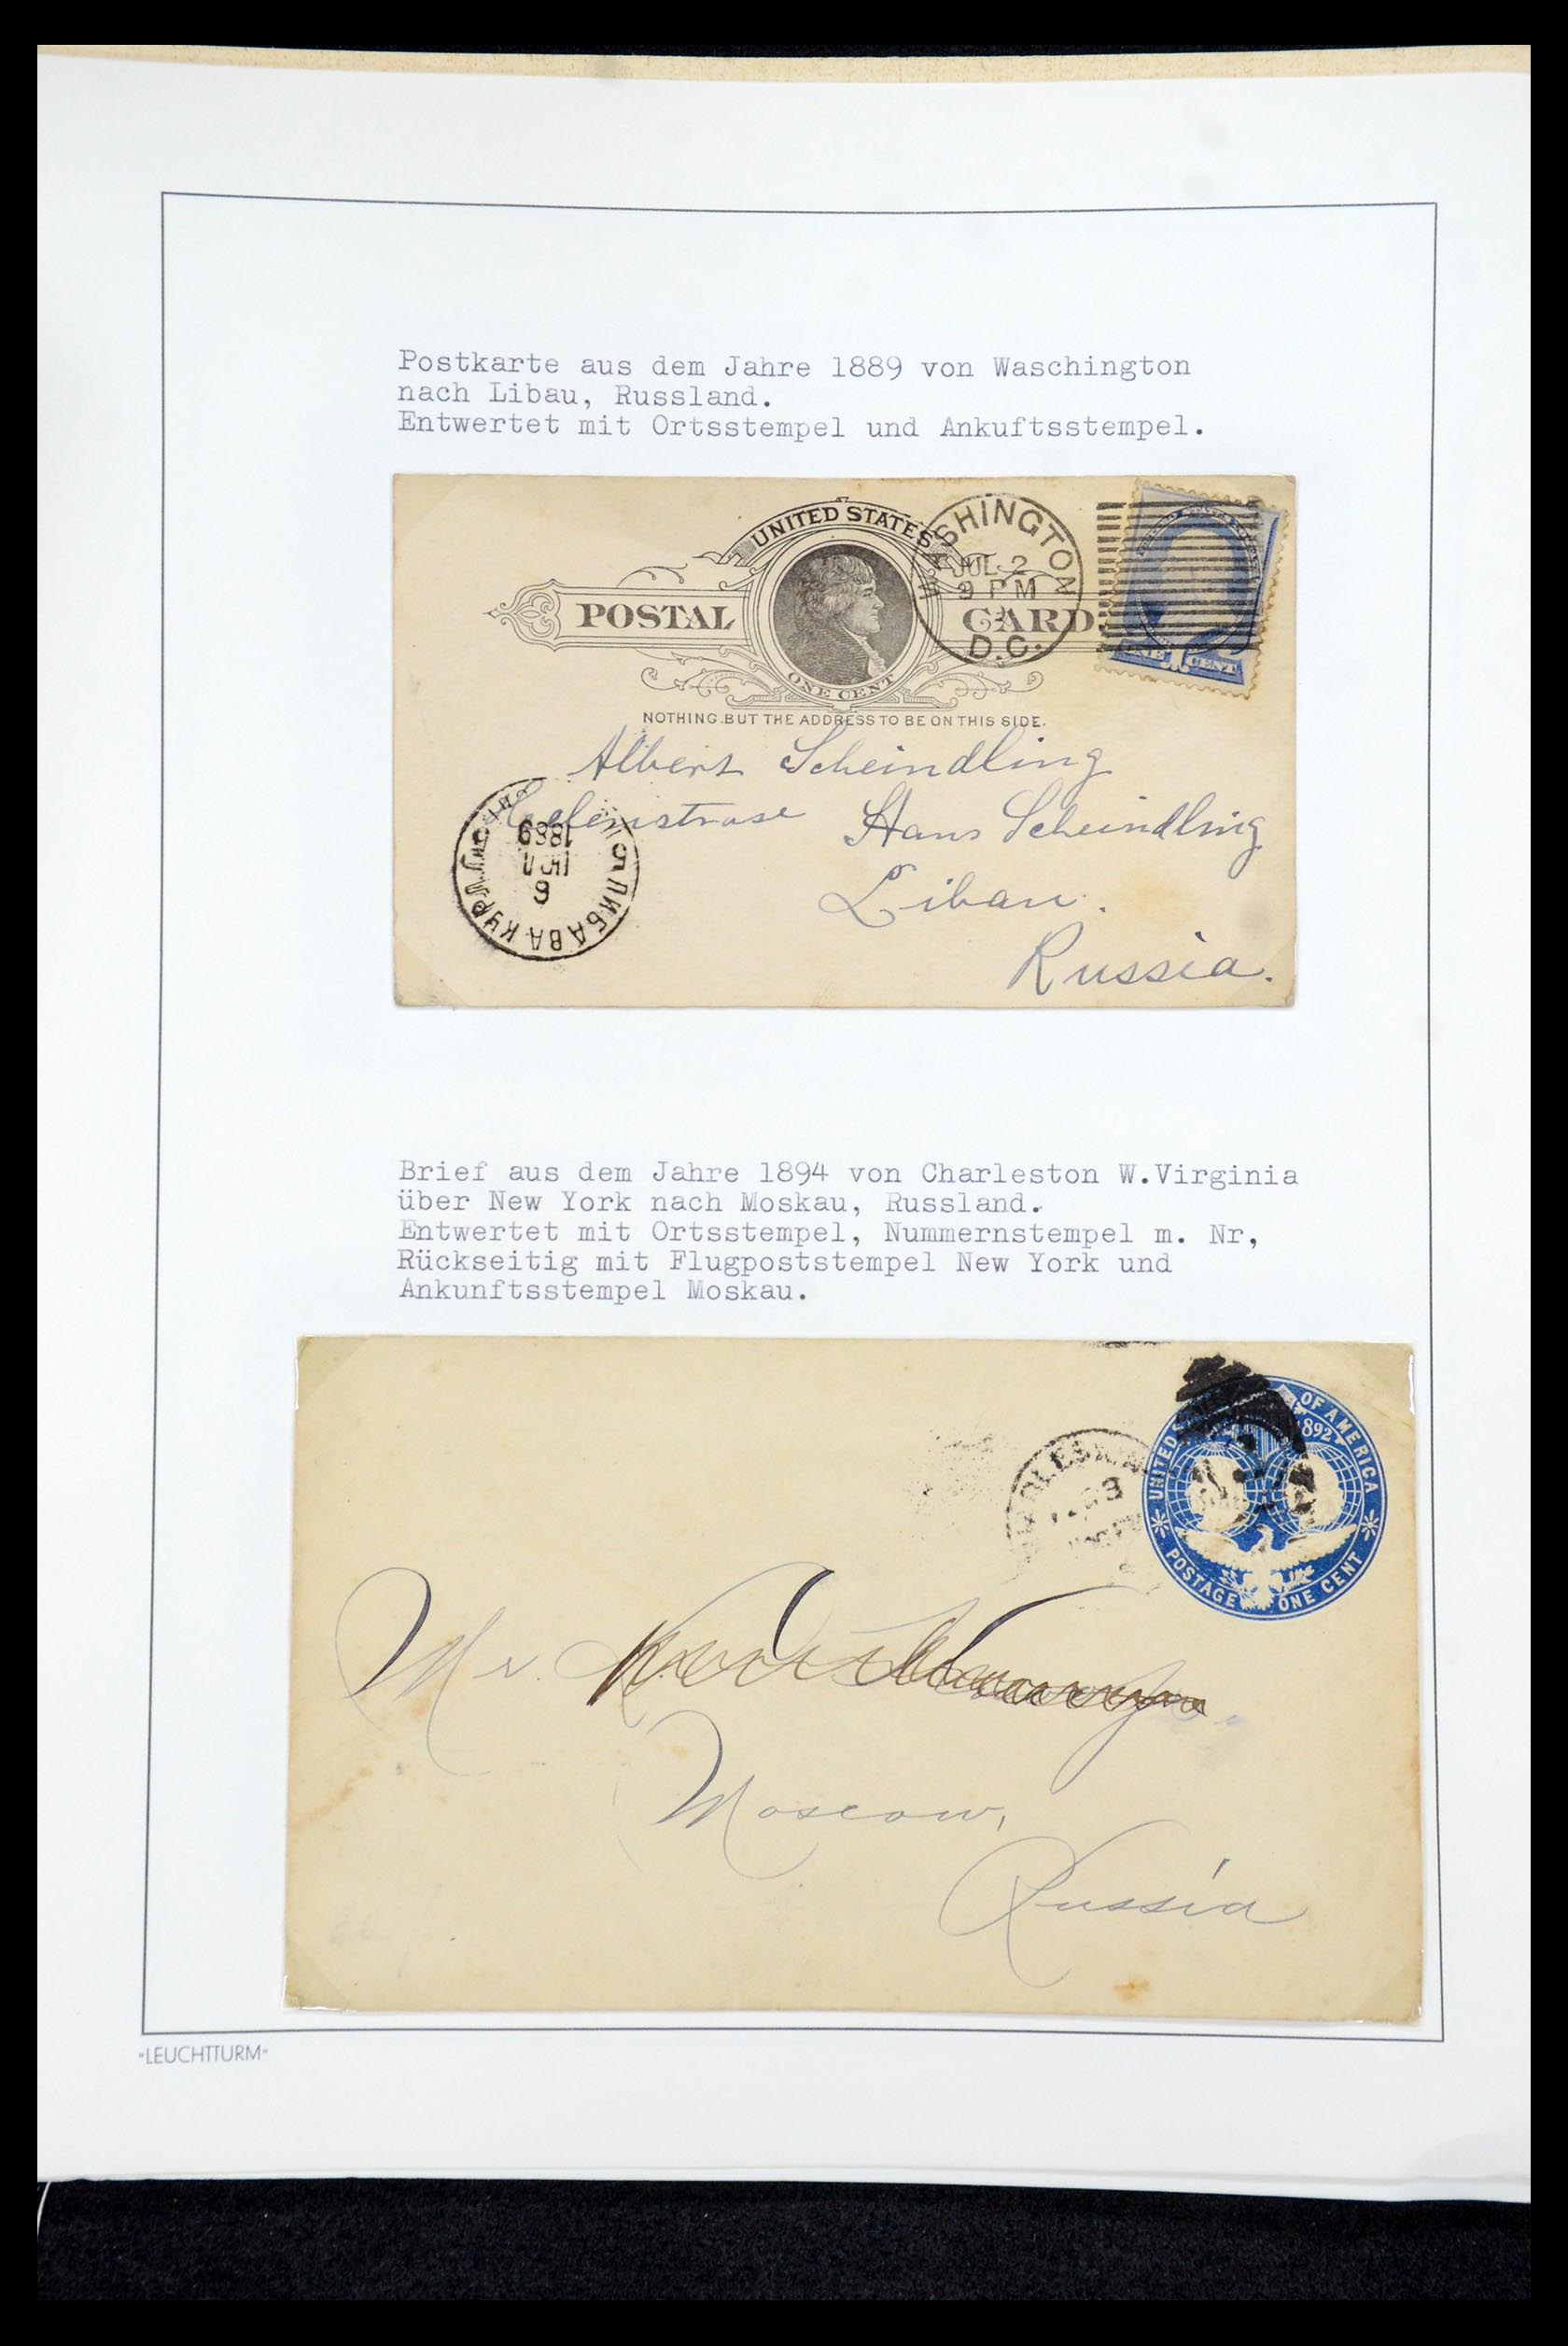 Postkarte aus dem Jahre 1889 von Waschington
nach Libau, Russland.
Entwertet mit Ortsstempel und Ankuftsstempel.
UNITED STATES
POSTAL CARD.
ONE CENT
WASHINGTON
JUL 2
9 PM
D.C.
ONE 1 CENT
NOTHING BUT THE ADDRESS TO BE ON THIS SIDE.
Albert Scheindling
Hans Scheindling
Libau.
Russia.
ЛИБАВА КУРЛ
6
1889
Brief aus dem Jahre 1894 von Charleston W.Virginia
über New York nach Moskau, Russland.
Entwertet mit Ortsstempel, Nummernstempel m. Nr,
Rückseitig mit Flugpoststempel New York und
Ankunftsstempel Moskau.
UNITED OF AMERICA
1892
POSTAGE ONE CENT
Mr.
Moscow,
Russia
"LEUCHTTURM"